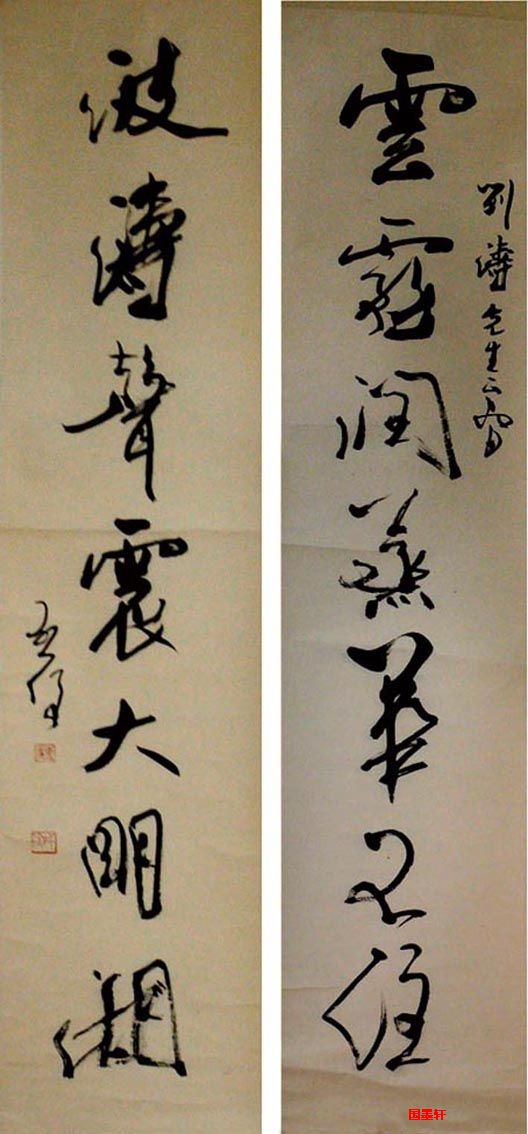 刘濤先生
雲霧潤蒸華不注
波濤聲震大明湖
国墨轩